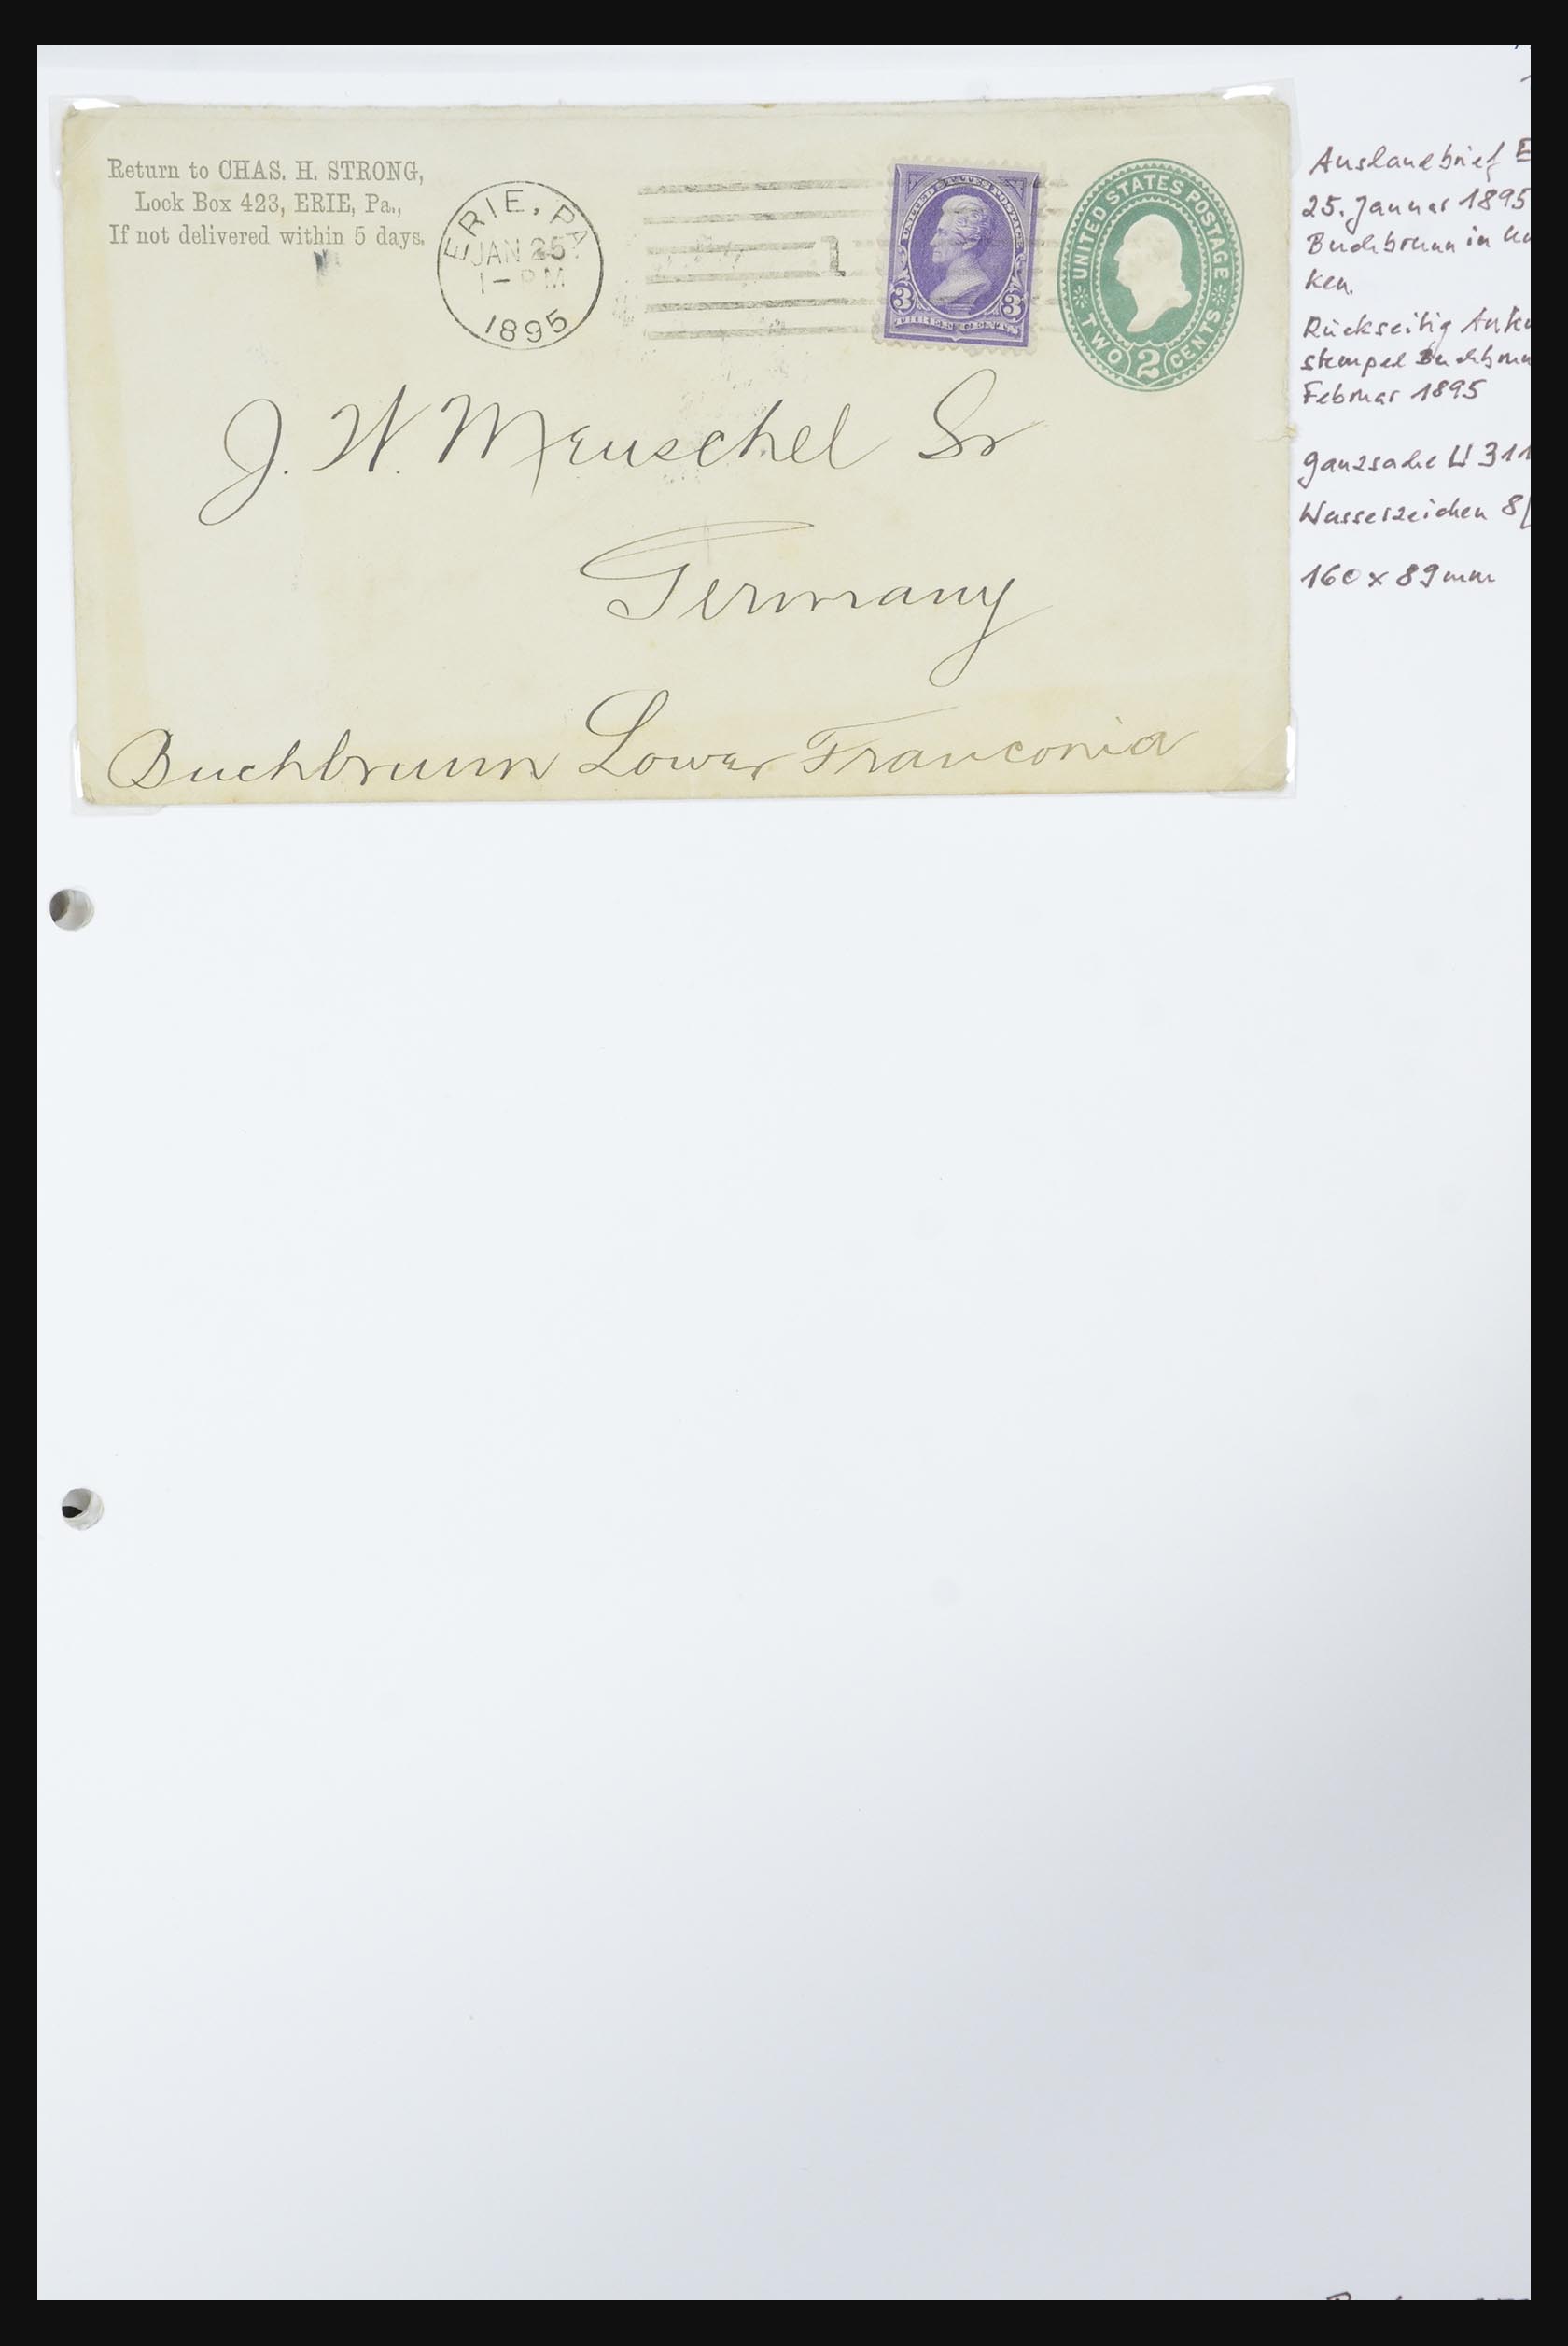 Return to CHAS. H. STRONG,
Lock Box 423, ERIE, Pa.,
If not delivered within 5 days.
ERIE, PA.
JAN 25
1-PM
1895
1
UNITED STATES POSTAGE
3 3
THREE CENTS
UNITED STATES POSTAGE
TWO 2 CENTS
J. W. Meuschel Sr
Germany
Buchbrunn Lower Franconia
Auslandbrief E
25. Januar 1895
Buchbrunn in
ken.
Rückseitig Anku
stempel Buchbrun
Februar 1895
Ganzsache U 311
Wasserzeichen 8
160 x 89 mm